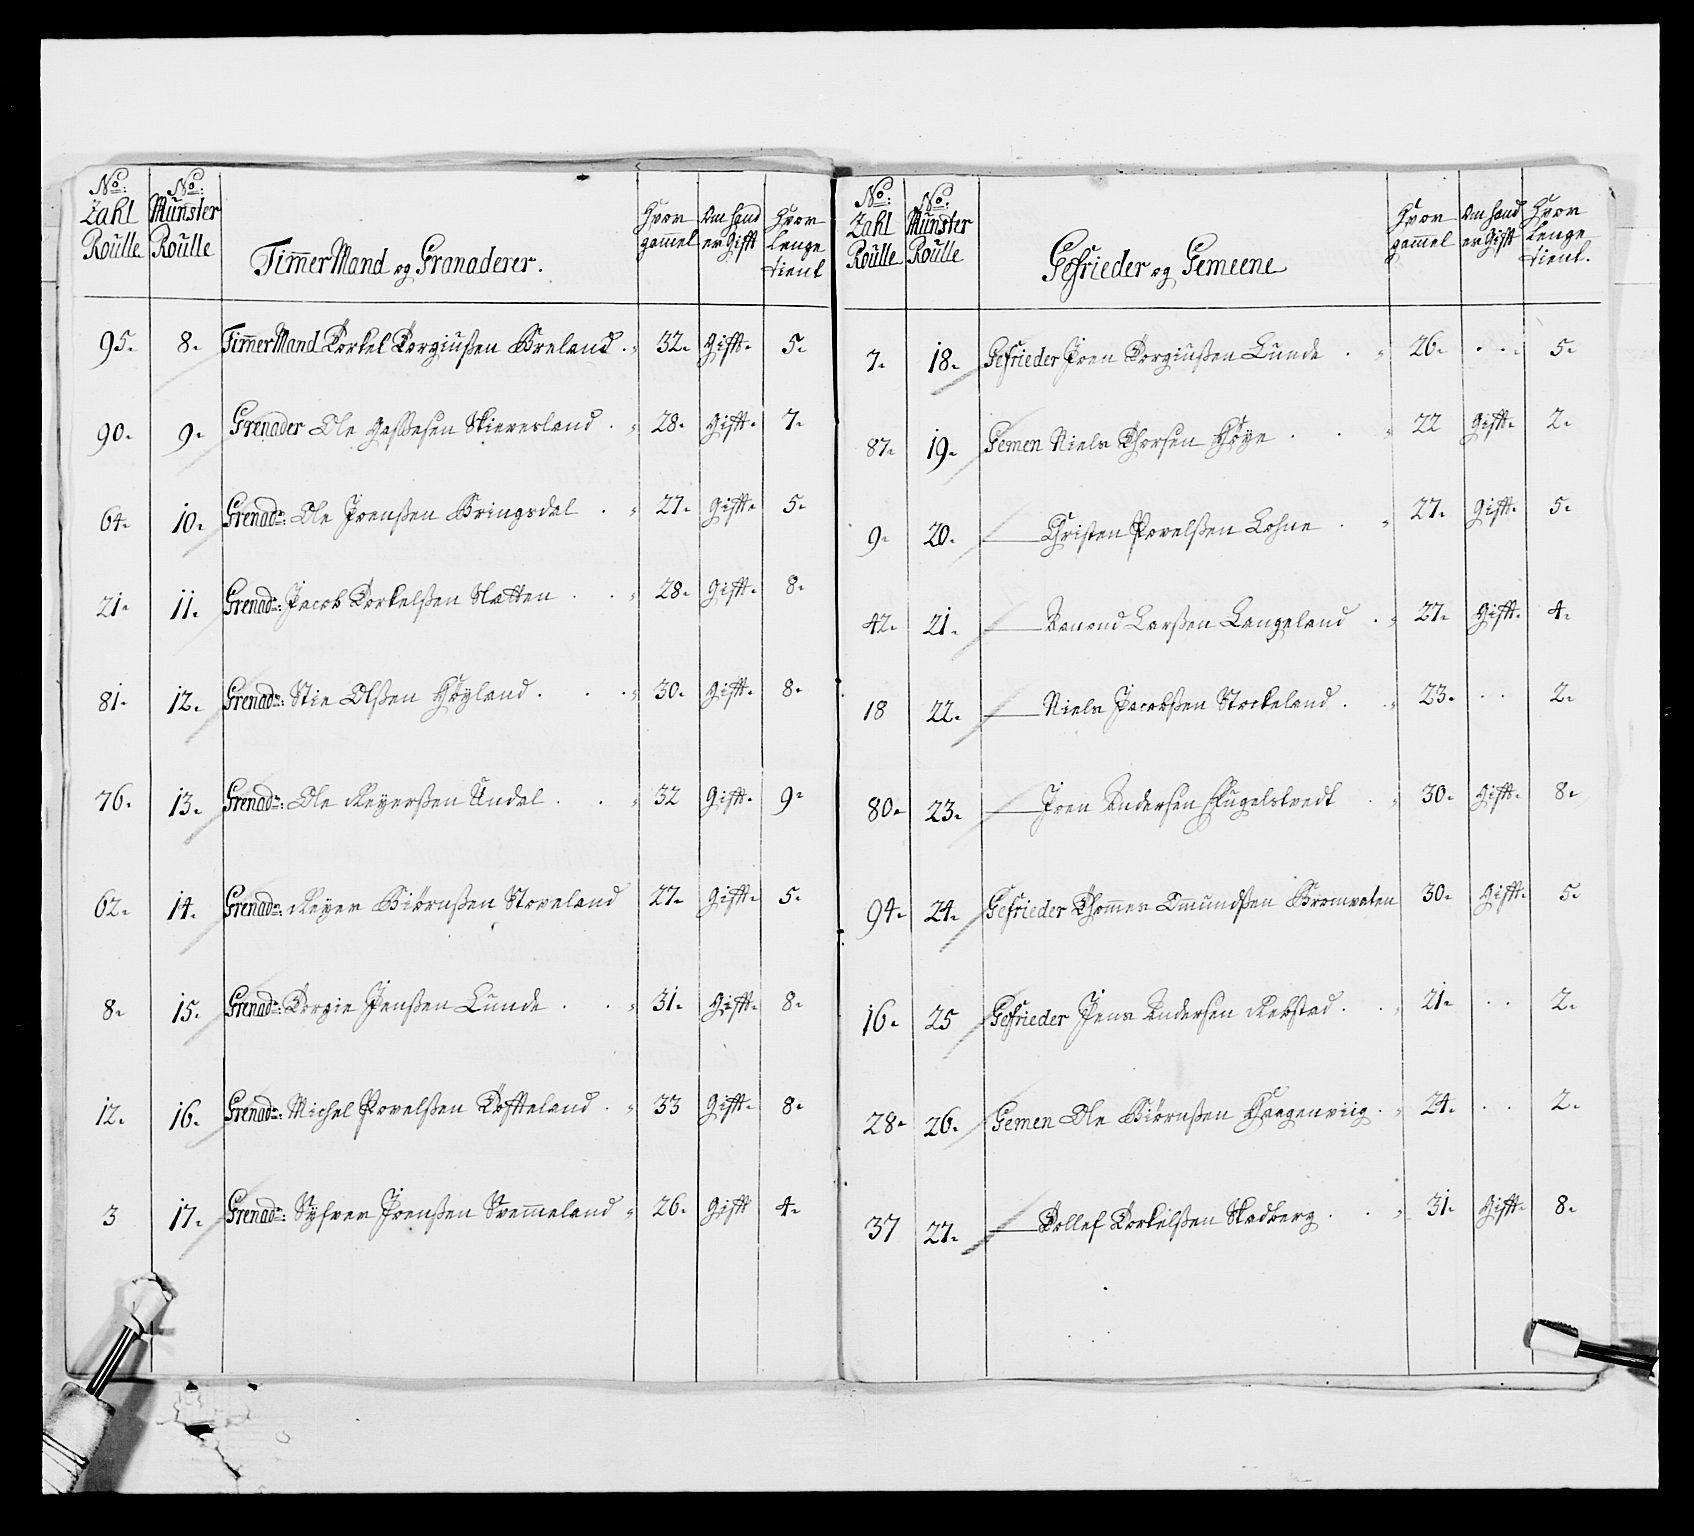 No: Zahl Roulle
No: Munster Roulle
Timmer Mand og Granaderer.
Hvor gammel
Om hand er Gifft
Hvor lenge tient
95. 8. Timmer Mand Torkel Torgiußen Breland. 32. Gifft. 5.
90. 9. Grenader Ole Staverland. 28. Gifft. 7.
64. 10. Grenadr: Ole Jrenßen Bringsdal. 27. Gifft. 5.
21. 11. Grenadr: Jacob Torkelßen Natten. 28. Gifft. 8.
81. 12. Grenadr: Stie Olßen Høyland. 30. Gifft. 8.
76. 13. Grenadr: Ole Reyerßen Undal. 32 Gifft. 9.
62. 14. Grenadr: Reyer Biörnßen Stoveland 27. Gifft. 5.
8. 15. Grenadr: Torgie Jenßen Lunde. 31. Gifft. 8.
12. 16. Grenadr: Michel Povelßen Tofteland. 33 Gifft. 8.
3 17. Grenadr: Syfver Jrenßen Svemmeland 26. Gifft 4.
No: Zahl Roulle
No. Munster Roulle
Gefrieder og Gemeene
Hvor gammel
Om hand er Gifft
Hvor lenge tient.
7. 18. Gefrieder Jren Torgiußen Lunde. 26. . . 5.
87. 19. Gemen Niels Thorsen Høye. 22 Gifft. 2.
9. 20. Christen Povelßen Lohne. 27. Gifft. 5.
42. 21. Larßen Langeland. 27. Gifft. 4.
18 22. Niels Jacobßen Stockeland. 23. . . 2.
80. 23. Jren Andersen 30. Gifft. 8.
94. 24. Gefrieder Thommes Omundßen 30. Gifft. 5.
16. 25 Gefrieder Jens Andersen Rebstad. 21. . . 2.
28. 26. Gemen Ole Biörnßen Haagenviig. 24. . . 2.
37 27. Tollef Torkelßen Stadberg. 31. Gifft. 8.